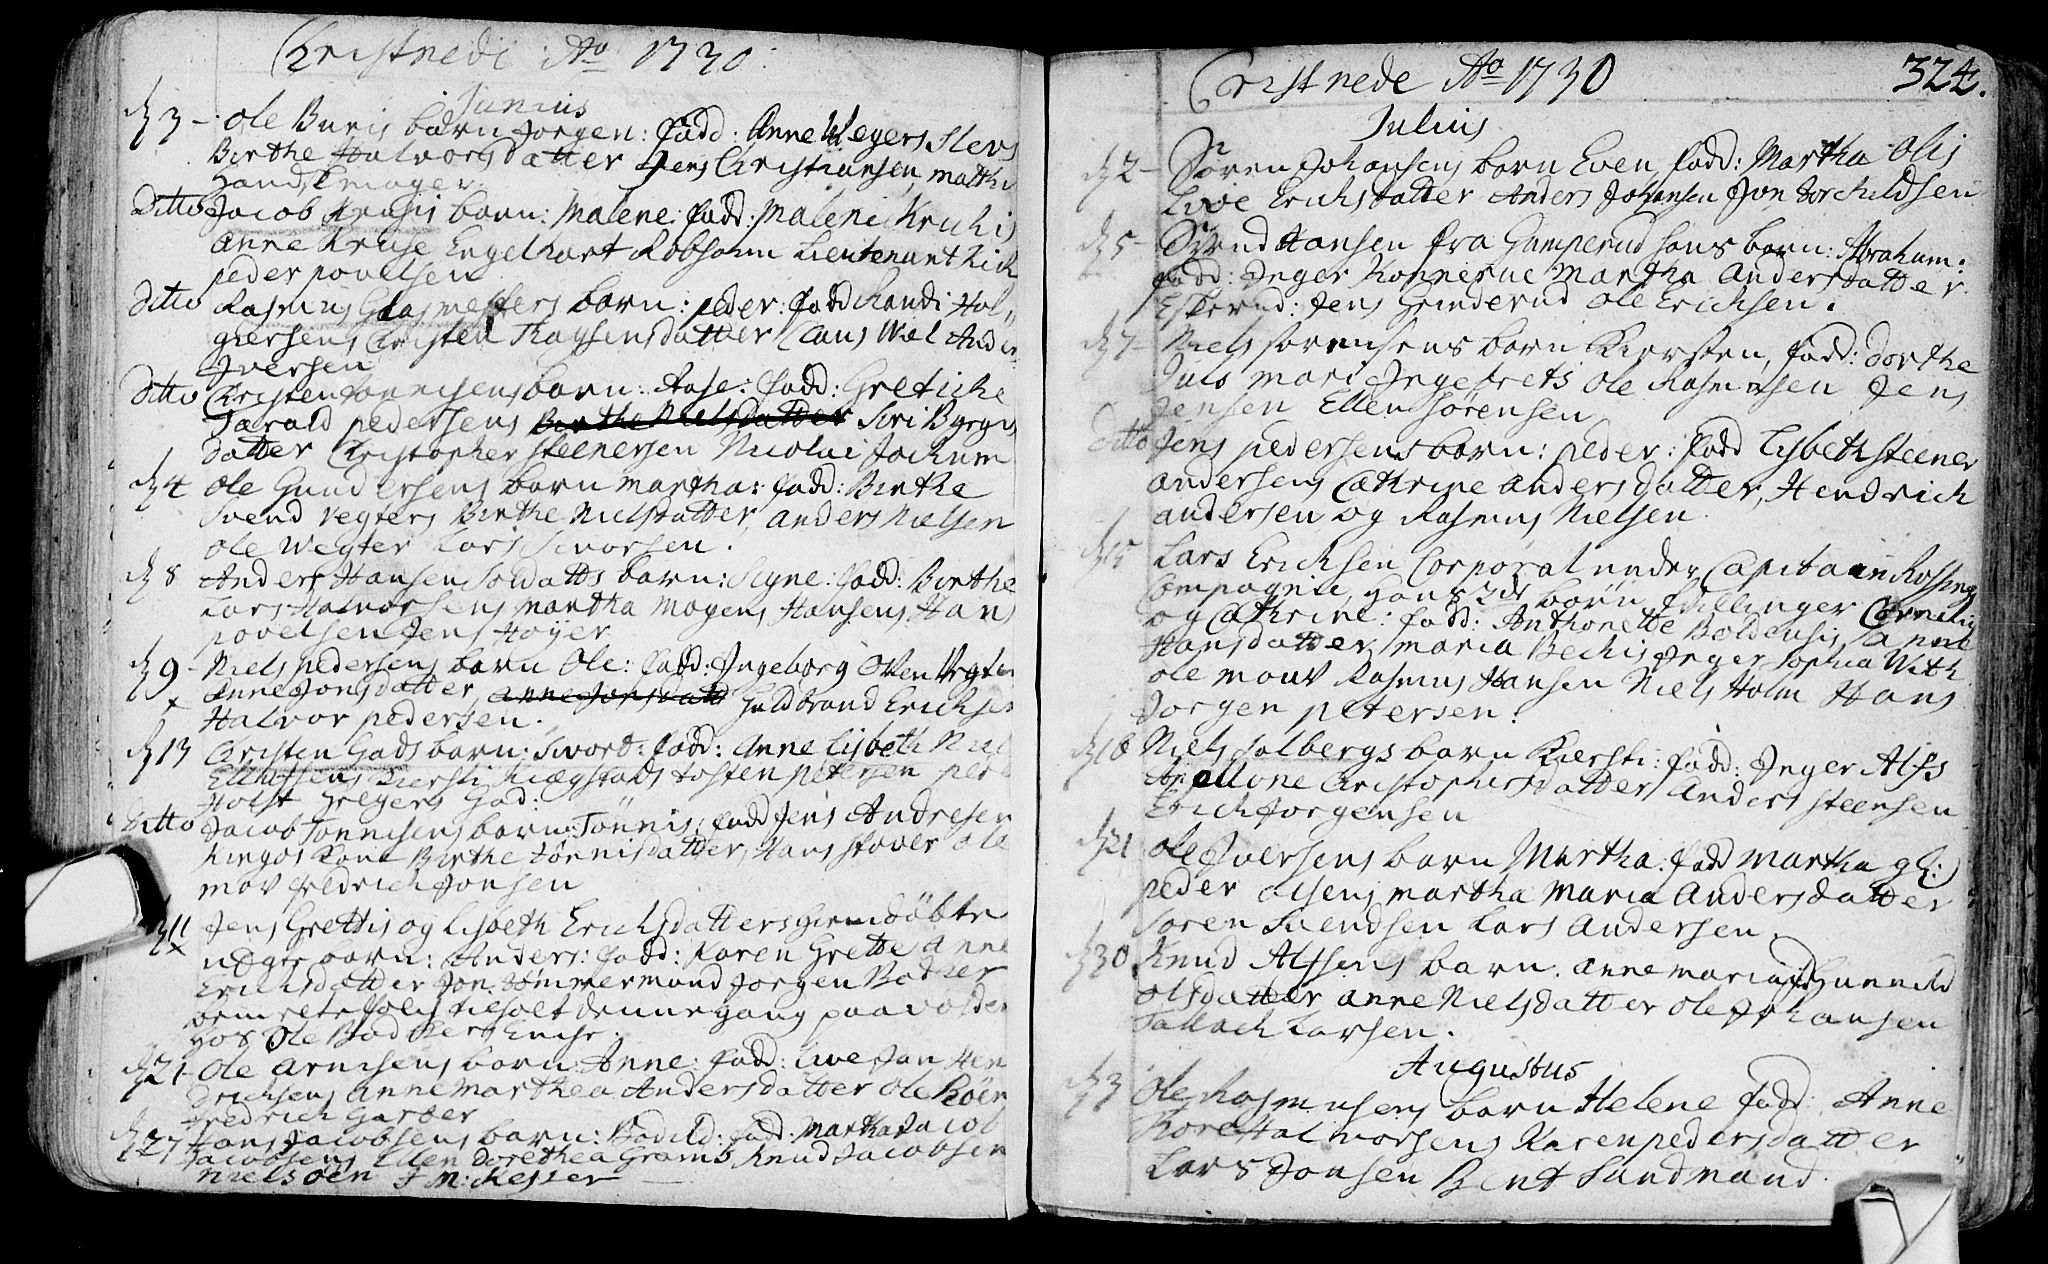 Christnede Ao 1730.
Junius
d 3 - Ole Buris barn Jørgen: fadd: Anne Weyers Slevs
Birthe Halvorsdatter Jens Christiansen, Matthi
Handskemager
Ditto Jacob Krusis barn: Malene: fadd: Maleni Krichis
Anne Kruse Engelhart Robsahm Lieutenant Kick
peder povelsen
Ditto Rasmus Glasmesters barn: peder: fadd Randi Hol-
giersens Christen Thaysensdatter Claus Wiel Ander
Jversen
Ditto Christen Tønnisens barn: Aase: fadd: Gretiche
Tarald pedersens Birthe Nielsdatter Siri Byrges
datter Christopher Steenersen Nicolai Jochum
d 4 Ole Gundersens barn Martha: fadd: Birthe
Svend Vegters Birthe Nielsdatter Anders Nielsen
Ole Wegter Lars Sivorsen.
d 8 Anders Hansen Soldatts barn: Signe: fadd: Birthe
Lars Halvorsens Martha Mogens Hansens Hans
povelsen Jens Høyer
d 9 - Niels pedersens barn Ole: fadd: Ingeborg Oven Vegter
x Anne Jonsdatter, Anne Jonsdatt Guldbrand Erichsen
Halvor pedersen.
d 13 Christen Gads barn: Sivord: fadd: Anne Lisbeth Niel
Ellertsens Kiersti Kiægstads Tosten petersen per
Holst Gregers Gad:
Ditto Jacob Tønnisens barn: Tønnis: fadd Jens Andresen
Kingos Kone Birthe Tønnisdatter, Hans Støver Ole
Mov fredrich Jonsen
d 11 Jens Grettis og Lisbeth Erichsdatters hiemdøbte
x uægte barn: Anders: fadd: Karen Grette Anne
Erichsdatter Jon Tømmermand Jørgen Bødker
hos Ole Bødkers Enche.
d 21 - Ole Arnesens barn: Anne: fadd: Live Jan Hen
drichsens Anne Marthea Andersdatter Ole Røen
fredrich Garber
d 27 Hans Jacobsens barn: Bodild: fadd: Martha Jacob
Jacobsens Ellen Dorethea Grams Knud Jacobsen
Niels øen J M: Kesler
Christnede Ao 1730 324.
Julius
d 2 - Søren Johansens barn Even fadd: Martha Olis
Live Erichsdatter Anders Johansen Jon Torchildsen
d 5 - Svend Hansen fra Gamperud hans barn: Abraham:
fadd: Inger Konnerue Martha Andersdatter
Eskerud: Jens Grinderud Ole Erichsen.
d 7 - Niels Sørensens barn Kiersten, fadd: Dorthe
Juls Mari Ingebrets Ole Rasmusen Jens
Jensen Ellen Sørensen
Ditto Jens pedersens barn: peder: fadd Lisbeth Steener
Andersens Cathrine Andersdatter, Hendrich
Andersen og Rasmus Nielsen
d 15 Lars Erichsen Corporal under Capitain Rossings
Compagnie, Hans 2de børn tvillinger Cornelia
og Cathrine: fadd: Anthonette Boldensis Sanne
Hansdatter Maria Bechis Inger Sophia With
Ole Mouv Rasmus Hansen Niels Holm Hans
Jørgen petersen.
d 18 Niels Solbergs barn Kiersti: fadd: Inger Alfs
Apellone Christophersdatter Anders Steensen
Erich Jørgensen
d 21 Ole Jversens barn Martha: fadd Martha gl:
peder Olsens Martha Maria Andersdatter
Søren Svendsen Lars Andersen.
d 30 Knud Alfsens barn. Anne Maria fd: Gunnild
Olsdatter Anne Nielsdatter Ole Johansen
Tallach Larsen.
Augustus
d 3 Ole Rasmusens barn Helene fadd: Anne
Thore Halvorsens Karen pedersdatter
Lars Jonsen Bent Sandmand.